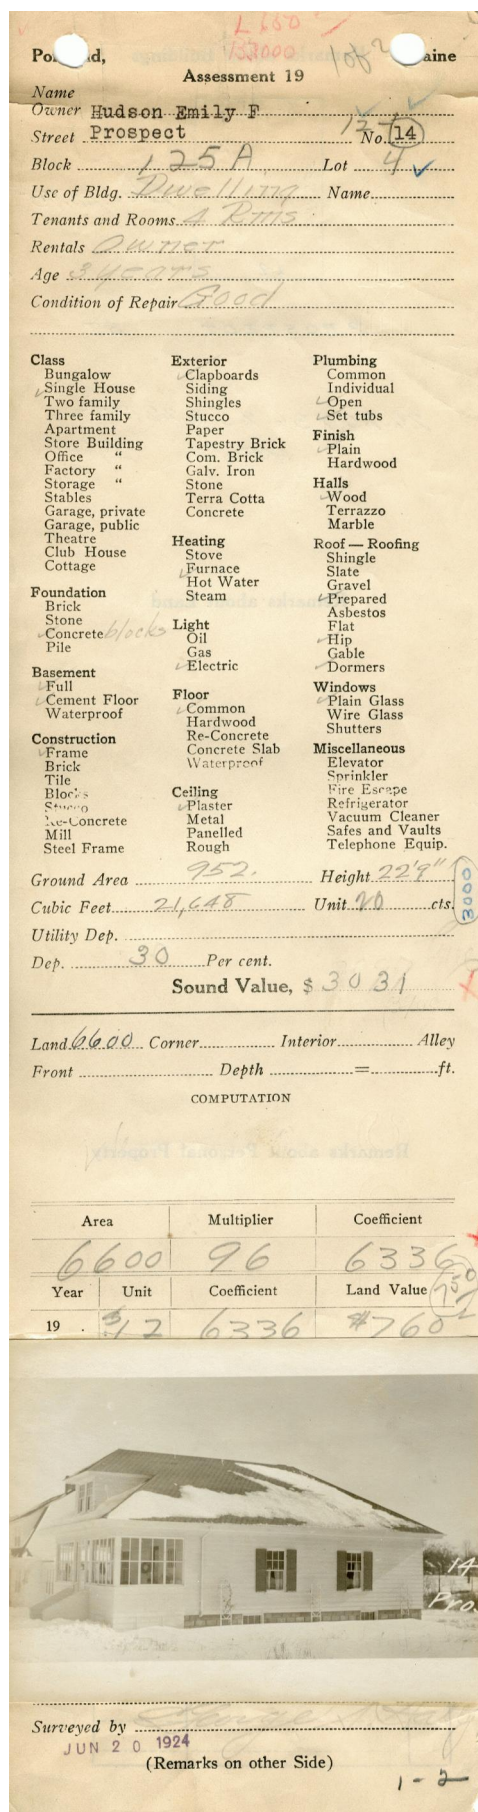 L 650
B3000
Portland, Maine
1 of 2
Assessment 19
Name
Owner Hudson Emily F
Street Prospect No. 14
Block 125A Lot 4
Use of Bldg. Dwelling Name
Tenants and Rooms 4 Rms
Rentals Owner
Age 3 years
Condition of Repair Good
Class
Bungalow
Single House
Two family
Three family
Apartment
Store Building
Office “
Factory “
Storage “
Stables
Garage, private
Garage, public
Theatre
Club House
Cottage
Foundation
Brick
Stone
Concrete blocks
Pile
Basement
Full
Cement Floor
Waterproof
Construction
Frame
Brick
Tile
Blocks
Stucco
Re-Concrete
Mill
Steel Frame
Exterior
Clapboards
Siding
Shingles
Stucco
Paper
Tapestry Brick
Com. Brick
Galv. Iron
Stone
Terra Cotta
Concrete
Heating
Stove
Furnace
Hot Water
Steam
Light
Oil
Gas
Electric
Floor
Common
Hardwood
Re-Concrete
Concrete Slab
Waterproof
Ceiling
Plaster
Metal
Panelled
Rough
Plumbing
Common
Individual
Open
Set tubs
Finish
Plain
Hardwood
Halls
Wood
Terrazzo
Marble
Roof — Roofing
Shingle
Slate
Gravel
Prepared
Asbestos
Flat
Hip
Gable
Dormers
Windows
Plain Glass
Wire Glass
Shutters
Miscellaneous
Elevator
Sprinkler
Fire Escape
Refrigerator
Vacuum Cleaner
Safes and Vaults
Telephone Equip.
Ground Area 952. Height 22'9"
Cubic Feet 21,648 Unit 20 cts.
3000
Utility Dep.
Dep. 30 Per cent.
Sound Value, $ 3031
Land 6600 Corner Interior Alley
Front Depth = ft.
COMPUTATION
Area Multiplier Coefficient
6600 96 6336
Year Unit Coefficient Land Value 750
19 . 12 6336 $760
14
Pros
Surveyed by
JUN 20 1924
(Remarks on other Side)
1-2